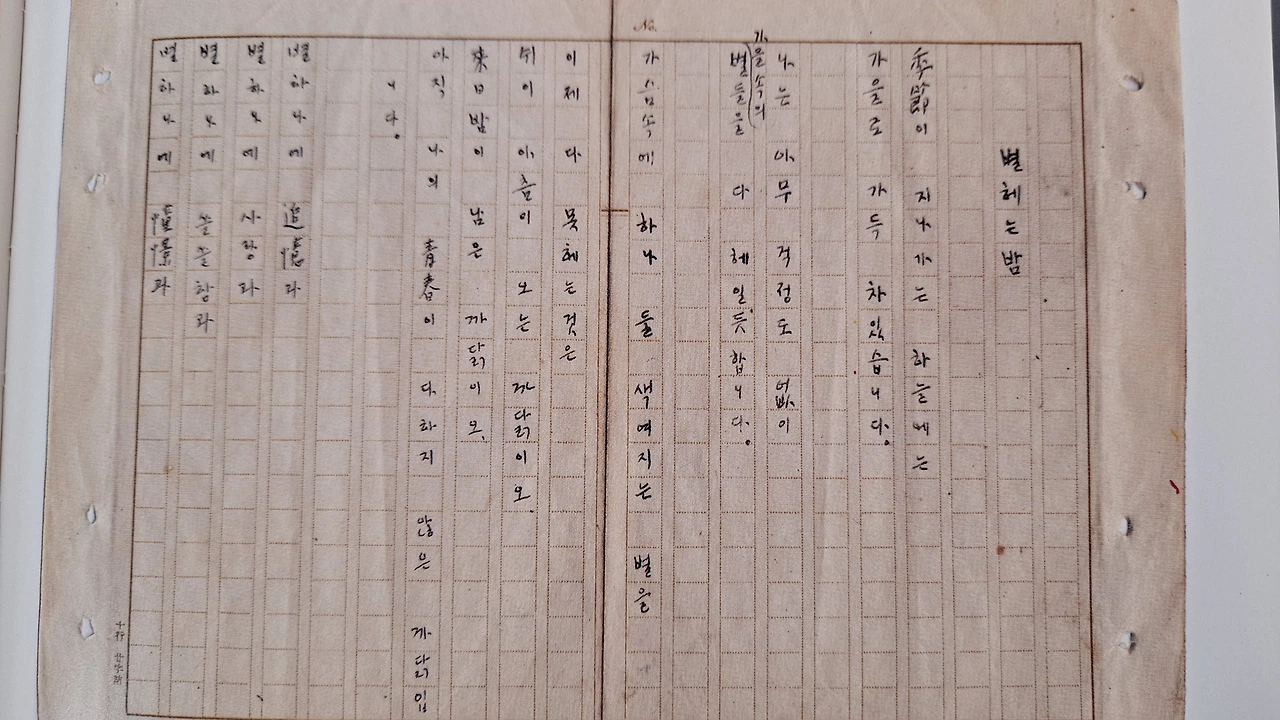 No.
별헤는밤
季節이 지나가는 하늘에는
가을로 가득 차있습니다.
나는 아무 걱정도 없이
가을속의
별들을 다 헤일듯합니다.
가슴속에 하나 둘 색여지는 별을
이제 다 못헤는것은
쉬이 아츰이 오는 까닭이오,
來日밤이 남은 까닭이오,
아직 나의 靑春이 다하지 않은 까닭입
니다.
별하나에 追憶과
별하나에 사랑과
별하나에 쓸쓸함과
별하나에 憧憬과
十行 廿字詰